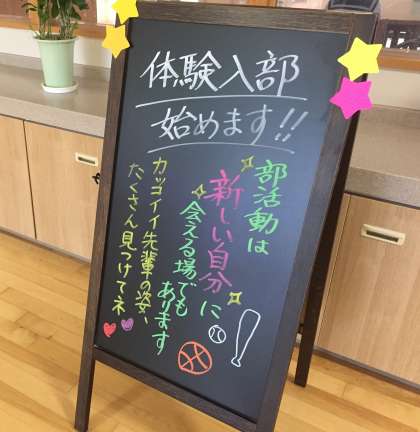 体験入部
始めます!!
部活動は
新しい自分に
会える場でも
あります
カッコイイ先輩の姿、
たくさん見つけてネ